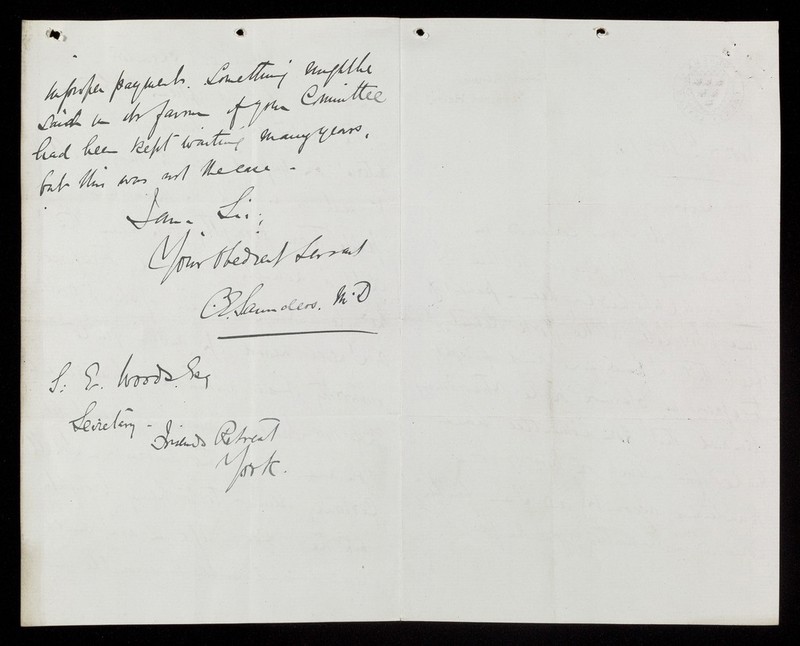 improper payments. Something might be
said in its favour if your Committee
had been kept waiting many years,
but this was not the case -
I am Sir,
Your Obedient Servant
C. E. Saunders. M.D
S. E. Woods. Esq
Secretary - Friends Retreat
York.